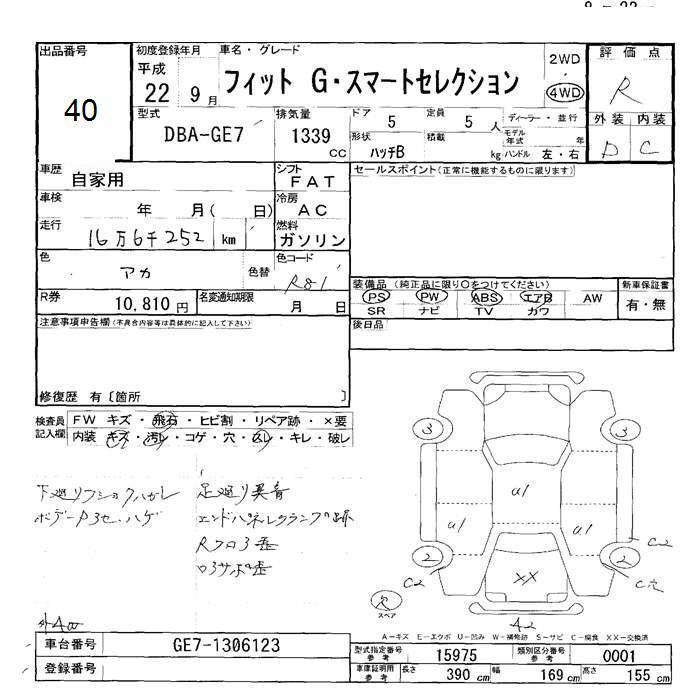 出品番号
40
初度登録年月
平成
22 9月
車名・グレード
フィット G・スマートセレクション
2WD
4WD
評価点
R
外装 内装
D C
型式
DBA-GE7
排気量
1339
CC
ドア
5
定員
5 人
ディーラー・並行
モデル年式 年
形状
ハッチB
積載
kg
ハンドル 左・右
車歴
自家用
シフト
FAT
車検
年 月( 日)
冷房
AC
走行
16万6千252 km
燃料
ガソリン
色
アカ
色替
色コード
R81
R券
10,810 円
名変通知期限
月 日
セールスポイント(正常に機能するものに限ります)
装備品 (純正品に限り〇をつけてください)
PS PW ABS エアB AW
SR ナビ TV カワ
新車保証書
有・無
後日品
注意事項申告欄(不具合内容等は具体的に記入して下さい)
修復歴 有〔箇所 〕
検査員記入欄
FW キズ・飛石・ヒビ割・リペア跡・×要
内装 キズ・汚レ・コゲ・穴・ムレ・キレ・破レ
下廻りフショクハガレ
足廻り異音
エンドパネルクランプ跡
外
3
3
U1
U1
U1
C2
2
2
C2
C穴
XX
R
スペア
A2
A-キズ E-エクボ U-凹み W-補修跡 S-サビ C-腐食 XX-交換済
車台番号
GE7-1306123
登録番号
型式指定番号
参考
15975
類別区分番号
参考
0001
車庫証明用
参考
長さ 390 cm
幅 169 cm
高さ 155 cm